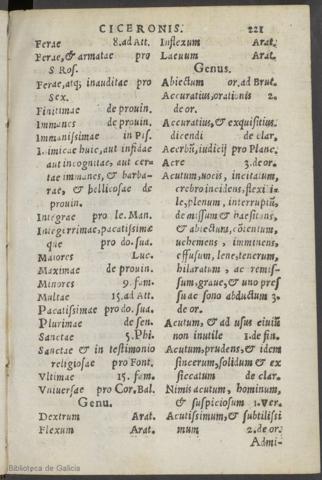 CICERONIS. 221
Ferae 8.ad Att.
Ferae, & armatae pro
S Ros.
Ferae, atq; inauditae pro
Sex.
Finitimae de prouin.
Immanes de prouin.
Immanissimae in Pis.
Inimicae huic, aut infidae
aut incognitae, aut cer
tae immanes, & barba-
rae, & bellicosae de
prouin.
Integrae pro le. Man.
Integerrimae, pacatissimae
que pro do. sua.
Maiores Luc.
Maximae de prouin.
Minores 9. fam.
Multae 15. ad Att.
Pacatissimae pro do. sua.
Plurimae de sen.
Sanctae 5. Phi.
Sanctae & in testimonio
religiosae pro Font.
Vltimae 15. fam.
Vniuersae pro Cor. Bal.
Genu.
Dextrum Arat.
Flexum Arat.
Inflexum Arat.
Laeuum Arat.
Genus.
Abiectum or. ad Brut.
Accuratius, orationis 2.
de or.
Accuratius, & exquisitius
dicendi de clar.
Acerbũ, iudicij pro Planc.
Acre 3. de or.
Acutum, uocis, incitatum,
crebro incidens, flexibi
le, plenum, interruptũ,
demissum & haesitans,
& abiectũ, cõtentum,
uehemens, imminens,
effusum, lene, tenerum,
hilaratum, ac remis-
sum, graue, & uno pres
su ac sono abductum 3.
de or.
Acutum, & ad usus
non inutile 1. de fin.
Acutum, prudens, & idem
sincerum, solidum & ex
siccatum de clar.
Nimis acutum, hominum,
& suspiciosum 1. Ver.
Acutissimum, & subtilissi
mum 2. de or.
Admi-
Biblioteca de Galicia